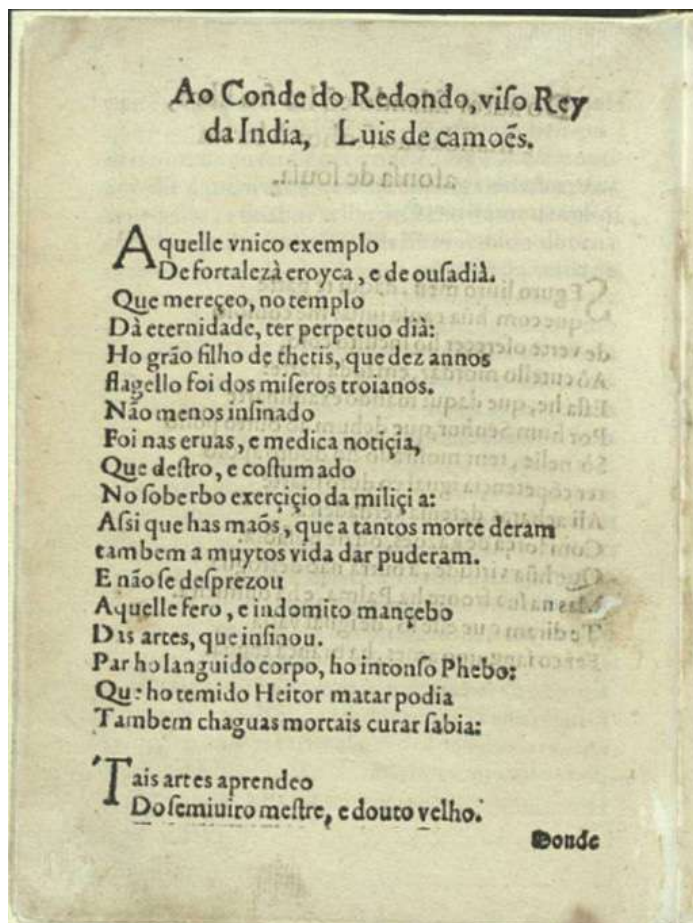 Ao Conde do Redondo, viſo Rey
da India, Luis de camoẽs.
Aquelle vnico exemplo
De fortalezà eroyca, e de ouſadià.
Que mereçeo, no templo
Dà eternidade, ter perpetuo dià:
Ho grão filho de thetis, que dez annos
flagello foi dos miſeros troianos.
Não menos inſinado
Foi nas eruas, e medica notiçia,
Que deſtro, e coſtumado
No ſoberbo exerçiçio da miliçi a:
Aſsi que has maõs, que a tantos morte deram
tambem a muytos vida dar puderam.
E não ſe deſprezou
Aquelle fero, e indomito mançebo
Das artes, que inſinou.
Par ho languido corpo, ho intonſo Phebo:
Que ho temido Heitor matar podia
Tambem chaguas mortais curar ſabia:
Tais artes aprendeo
Do ſemiuiro meſtre, e douto velho.
Donde